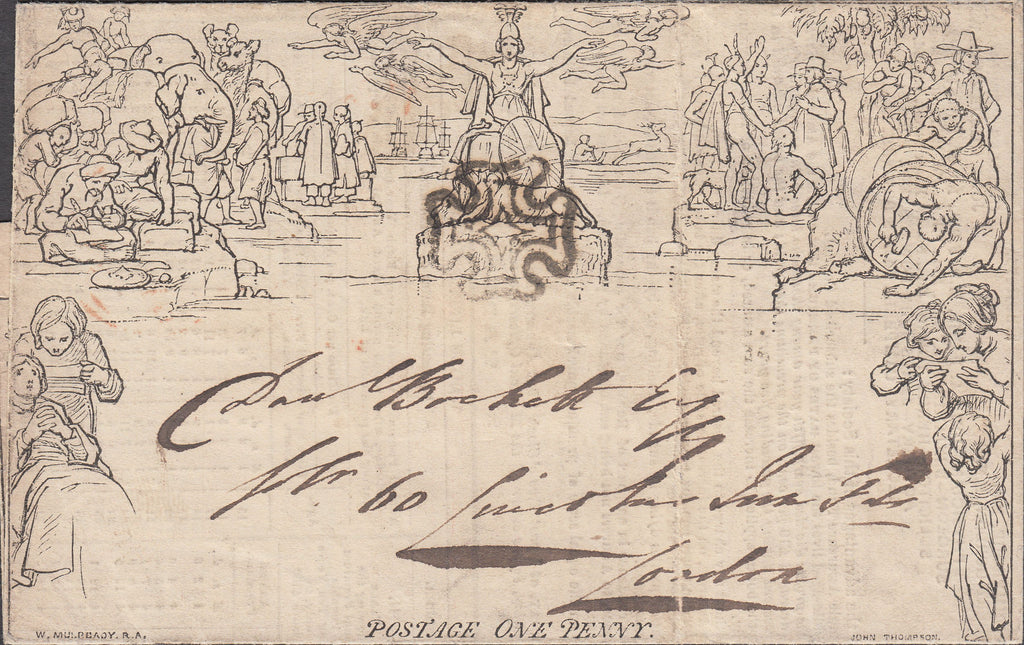 Danl Bockett Esq
No 60 Lincolns Inn Fds
London
POSTAGE ONE PENNY.
W. MULREADY. R.A.
JOHN THOMPSON.